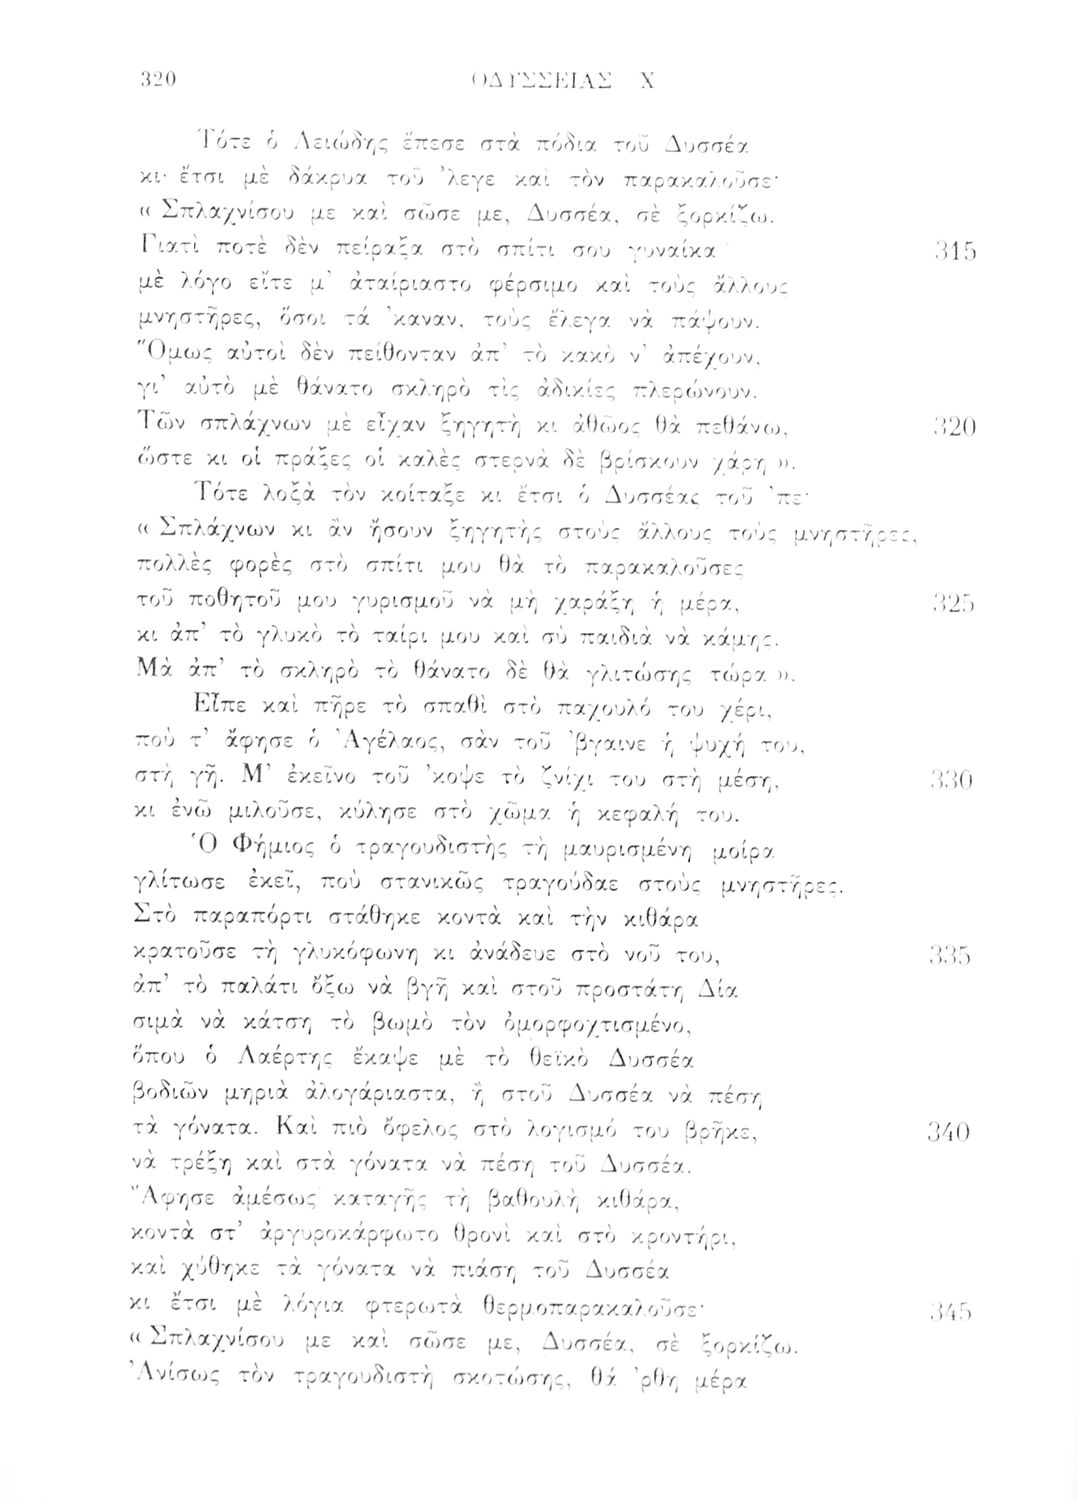 320 ΟΔΥΣΣΕΙΑΣ Χ
Τότε ὁ Λειώδης ἔπεσε στὰ πόδια τοῦ Δυσσέα
κι ἔτσι μὲ δάκρυα τοῦ ᾿λεγε καὶ τὸν παρακαλοῦσε·
« Σπλαχνίσου με καὶ σῶσε με, Δυσσέα, σὲ ξορκίζω.
Γιατὶ ποτὲ δὲν πείραξα στὸ σπίτι σου γυναίκα 315
μὲ λόγο εἴτε μ᾿ ἀταίριαστο φέρσιμο καὶ τοὺς ἄλλους
μνηστῆρες, ὅσοι τά ᾿καναν, τοὺς ἔλεγα νὰ πάψουν.
Ὅμως αὐτοὶ δὲν πείθονταν ἀπ᾿ τὸ κακὸ ν᾿ ἀπέχουν,
γι᾿ αὐτὸ μὲ θάνατο σκληρὸ τὶς ἀδικίες πλερώνουν.
Τῶν σπλάχνων μὲ εἶχαν ξηγητὴ κι ἀθῶος θὰ πεθάνω, 320
ὥστε κι οἱ πράξες οἱ καλὲς στερνὰ δὲ βρίσκουν χάρη ».
Τότε λοξὰ τὸν κοίταξε κι ἔτσι ὁ Δυσσέας τοῦ ᾿πε·
« Σπλάχνων κι ἂν ἤσουν ξηγητὴς στοὺς ἄλλους τοὺς μνηστῆρες,
πολλὲς φορὲς στὸ σπίτι μου θὰ τὸ παρακαλοῦσες
τοῦ ποθητοῦ μου γυρισμοῦ νὰ μὴ χαράξη ἡ μέρα, 325
κι ἀπ᾿ τὸ γλυκὸ τὸ ταίρι μου καὶ σὺ παιδιὰ νὰ κάμης.
Μὰ ἀπ᾿ τὸ σκληρὸ τὸ θάνατο δὲ θὰ γλιτώσης τώρα ».
Εἶπε καὶ πῆρε τὸ σπαθὶ στὸ παχουλό του χέρι,
ποὺ τ᾿ ἄφησε ὁ Ἀγέλαος, σὰν τοῦ ᾿βγαινε ἡ ψυχή του,
στὴ γῆ. Μ᾿ ἐκεῖνο τοῦ ᾿κοψε τὸ ζνίχι του στὴ μέση, 330
κι ἐνῶ μιλοῦσε, κύλησε στὸ χῶμα ἡ κεφαλή του.
Ὁ Φήμιος ὁ τραγουδιστὴς τὴ μαυρισμένη μοίρα
γλίτωσε ἐκεῖ, ποὺ στανικῶς τραγούδαε στοὺς μνηστῆρες.
Στὸ παραπόρτι στάθηκε κοντὰ καὶ τὴν κιθάρα
κρατοῦσε τὴ γλυκόφωνη κι ἀνάδευε στὸ νοῦ του, 335
ἀπ᾿ τὸ παλάτι ὄξω νὰ βγῆ καὶ στοῦ προστάτη Δία
σιμὰ νὰ κάτση τὸ βωμὸ τὸν ὁμορφοχτισμένο,
ὅπου ὁ Λαέρτης ἔκαψε μὲ τὸ θεϊκὸ Δυσσέα
βοδιῶν μηριὰ ἀλογάριαστα, ἢ στοῦ Δυσσέα νὰ πέση
τὰ γόνατα. Καὶ πιὸ ὄφελος στὸ λογισμό του βρῆκε, 340
νὰ τρέξη καὶ στὰ γόνατα νὰ πέση τοῦ Δυσσέα.
Ἄφησε ἀμέσως καταγῆς τὴ βαθουλὴ κιθάρα,
κοντὰ στ᾿ ἀργυροκάρφωτο θρονὶ καὶ στὸ κροντήρι,
καὶ χύθηκε τὰ γόνατα νὰ πιάση τοῦ Δυσσέα
κι ἔτσι μὲ λόγια φτερωτὰ θερμοπαρακαλοῦσε· 345
« Σπλαχνίσου με καὶ σῶσε με, Δυσσέα, σὲ ξορκίζω.
Ἀνίσως τὸν τραγουδιστὴ σκοτώσης, θά ᾿ρθη μέρα